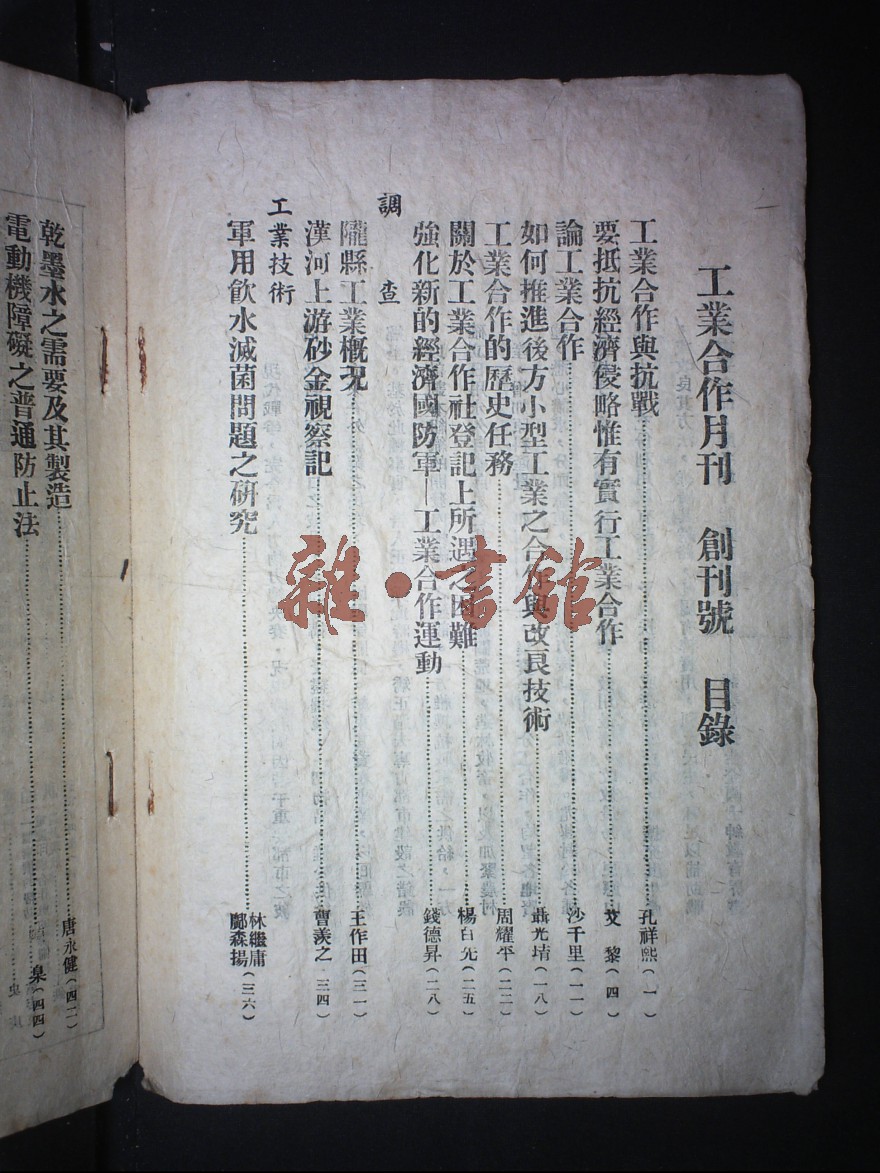 工業合作月刊　創刊號　目錄
工業合作與抗戰……孔祥熙（一）
要抵抗經濟侵略惟有實行工業合作……艾黎（四）
論工業合作……沙千里（一一）
如何推進後方小型工業之合作與改良技術……聶光堉（一八）
工業合作的歷史任務……周耀平（二二）
關於工業合作社登記上所遇之困難……楊百先（二五）
強化新的經濟國防軍—工業合作運動……錢德昇（二八）
調查
隴縣工業概況……王作田（三一）
漢河上游砂金視察記……曹美之（三四）
工業技術
軍用飲水滅菌問題之研究……林繼庸 鄺森揚（三六）
乾墨水之需要及其製造……唐永健（四二）
電動機障礙之普通防止法……臬（四四）
雜·書館